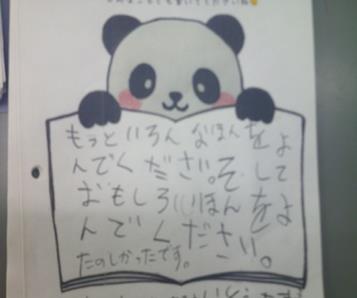 もっといろんなほんをよ
んでください。そして
おもしろいほんをよ
んでください。
たのしかったです。